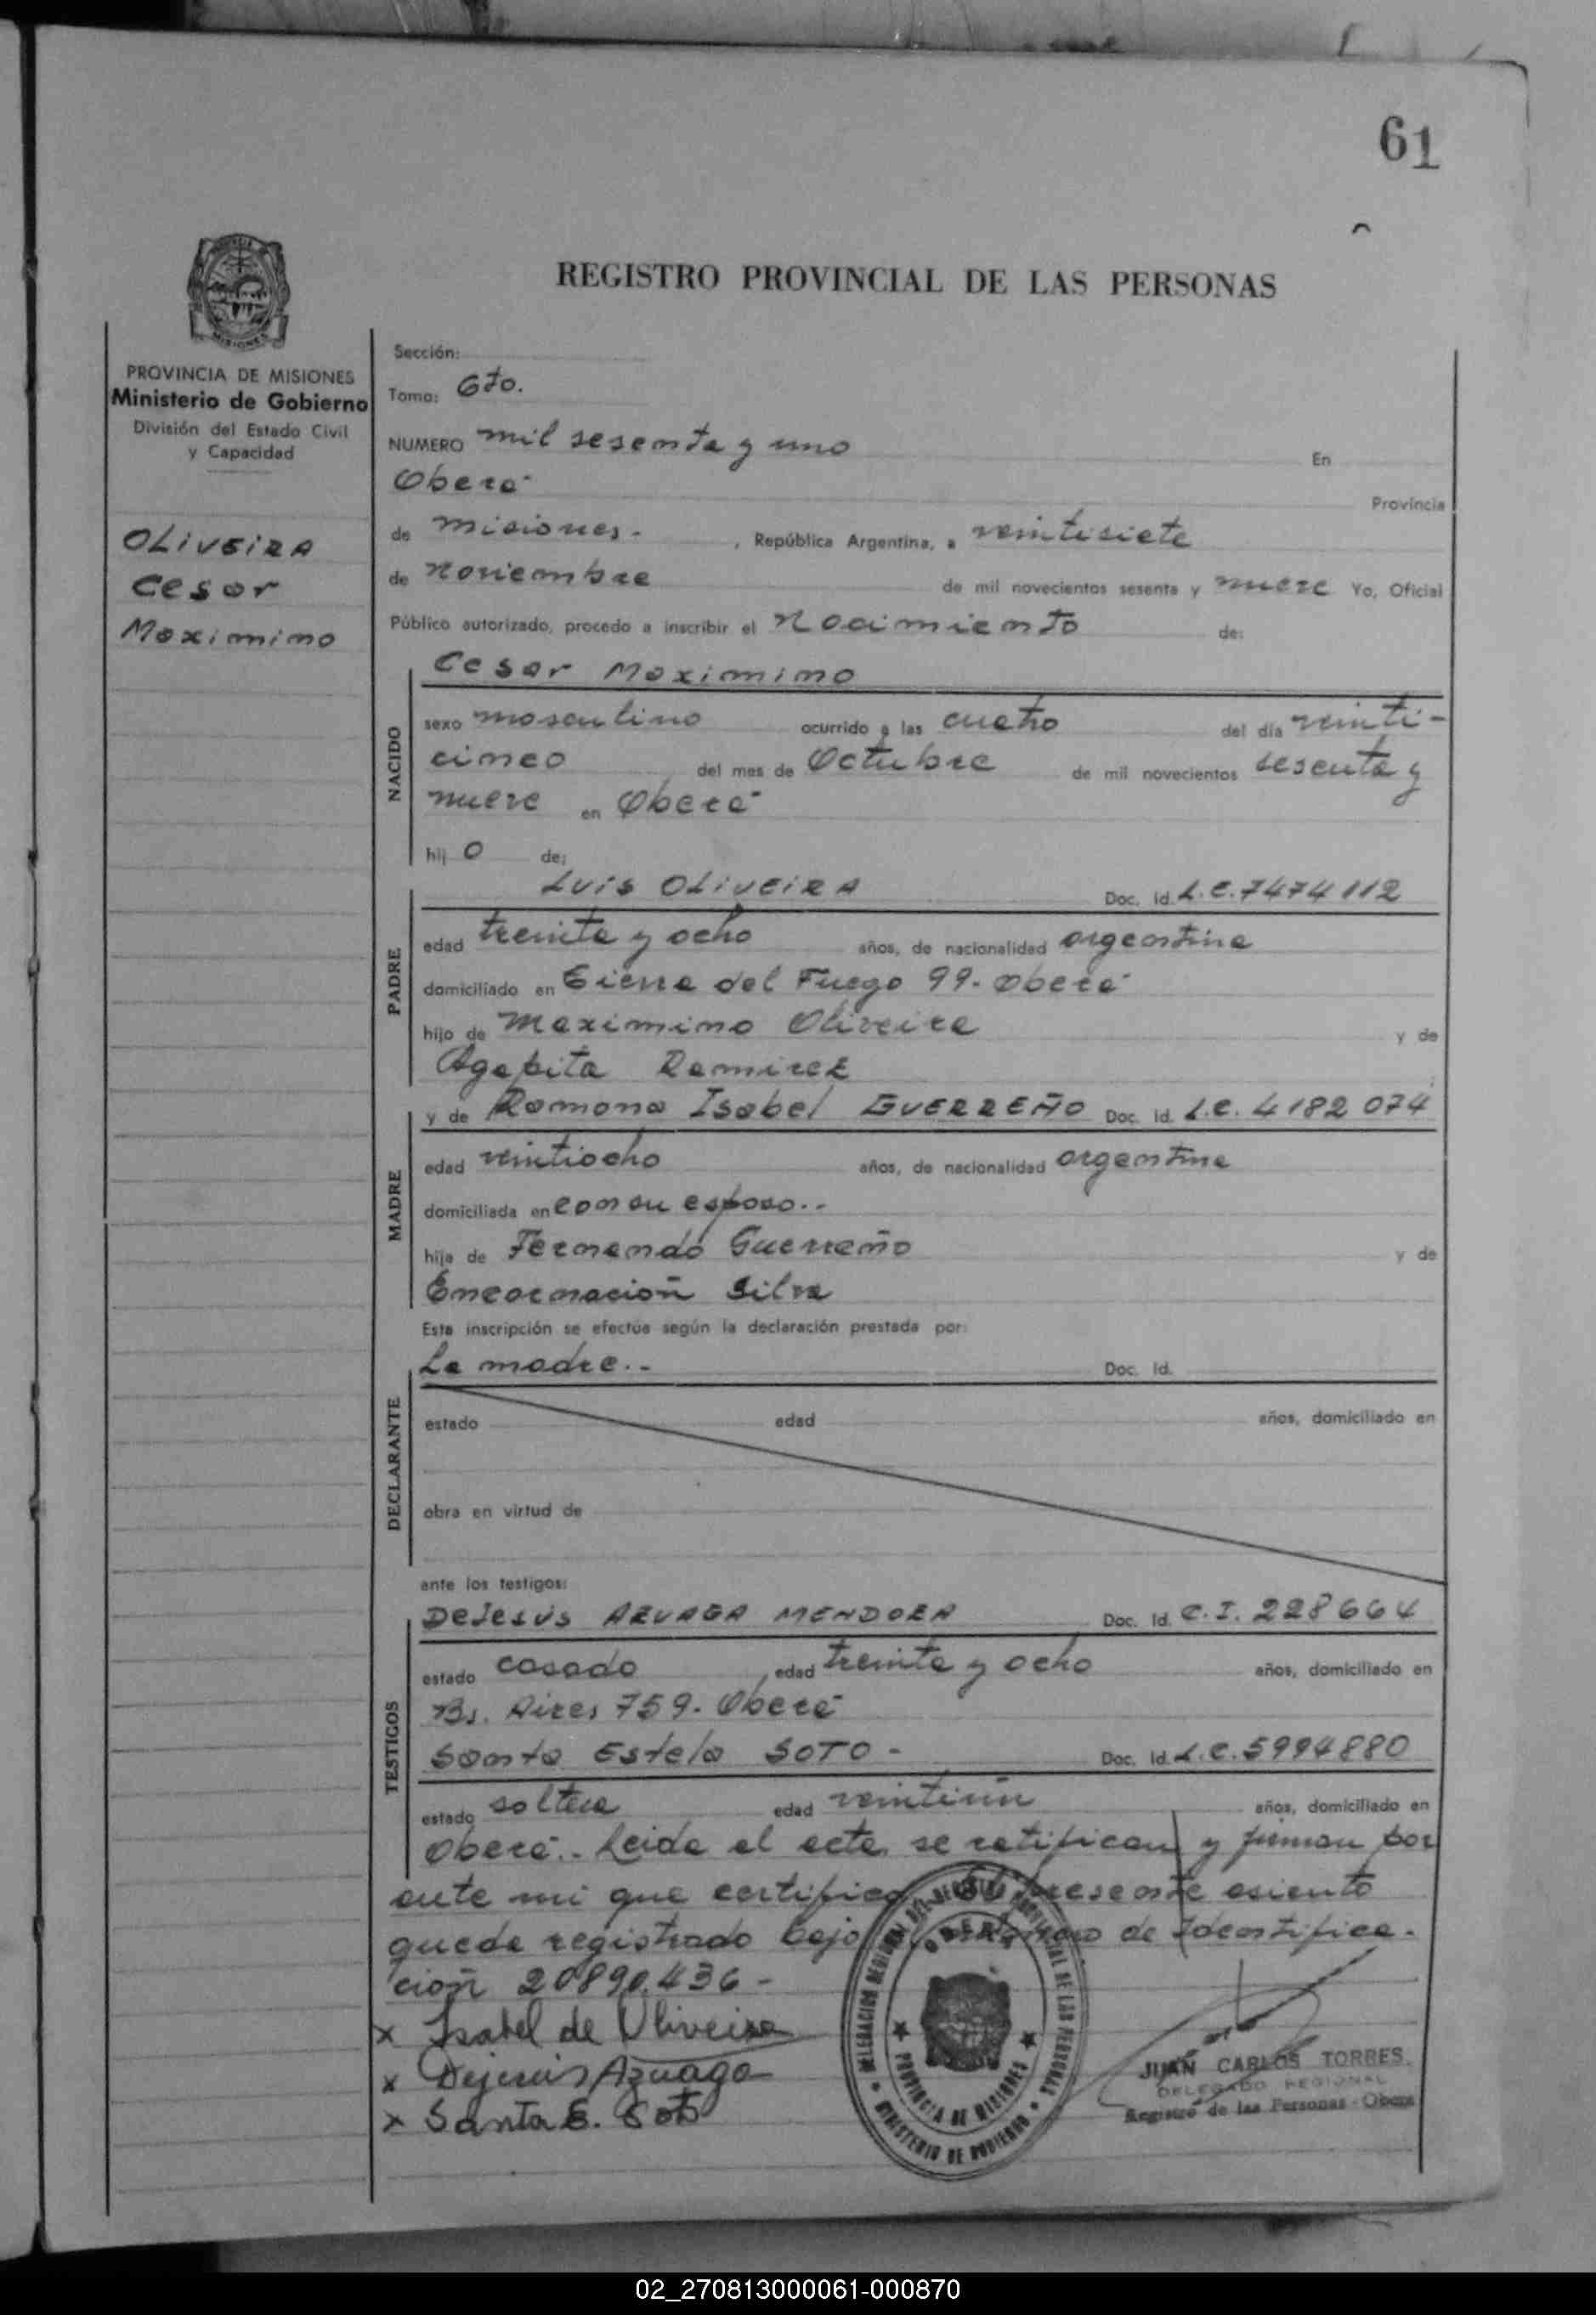 61
REGISTRO PROVINCIAL DE LAS PERSONAS
MISIONES
PROVINCIA DE MISIONES
Ministerio de Gobierno
División del Estado Civil
y Capacidad
OLIVEIRA
Cesar
Maximino
Sección:
Tomo: 6to.
NUMERO mil sesenta y uno En
Oberá Provincia
de misiones.- , República Argentina, a veintisiete
de noviembre de mil novecientos sesenta y nueve Yo, Oficial
Público autorizado, procedo a inscribir el Nacimiento de:
NACIDO
Cesar Maximino
sexo masculino ocurrido a las cuatro del día veinti-
cinco del mes de Octubre de mil novecientos sesenta y
nueve en Oberá
hij o de:
PADRE
Luis OLIVEIRA Doc. Id. L.E. 7474112
edad treinta y ocho años, de nacionalidad argentina
domiciliado en Tierra del Fuego 99.- Oberá
hijo de Maximino Oliveira y de
Agapita Ramirez
MADRE
y de Ramona Isabel GUERREÑO Doc. Id. L.C. 4182074
edad veintiocho años, de nacionalidad argentina
domiciliada en con su esposo..-
hija de Fernando Guerreño y de
Encarnación Silva
Esta inscripción se efectúa según la declaración prestada por:
DECLARANTE
La madre..- Doc. Id.
estado edad años, domiciliado en
obra en virtud de
ante los testigos:
TESTIGOS
DeJesús AZUAGA MENDOZA Doc. Id. C.I. 228664
estado casado edad treinta y ocho años, domiciliado en
Bs. Aires 759.- Oberá
Santa Estela SOTO - Doc. Id. L.C. 5994880
estado soltera edad veintiún años, domiciliado en
Oberá.- Leida el acta se ratifican y firman por
ante mi que certifico. El presente asiento
queda registrado bajo el número de Identifica-
ción 20890.436 -
x Isabel de Oliveira
x Dejesús Azuaga
x Santa E. Soto
DELEGACION REGIONAL DEL REGISTRO PROVINCIAL DE LAS PERSONAS
OBERA
PROVINCIA DE MISIONES
MINISTERIO DE GOBIERNO
JUAN CARLOS TORRES
DELEGADO REGIONAL
Registro de las Personas - Obera
02_270813000061-000870